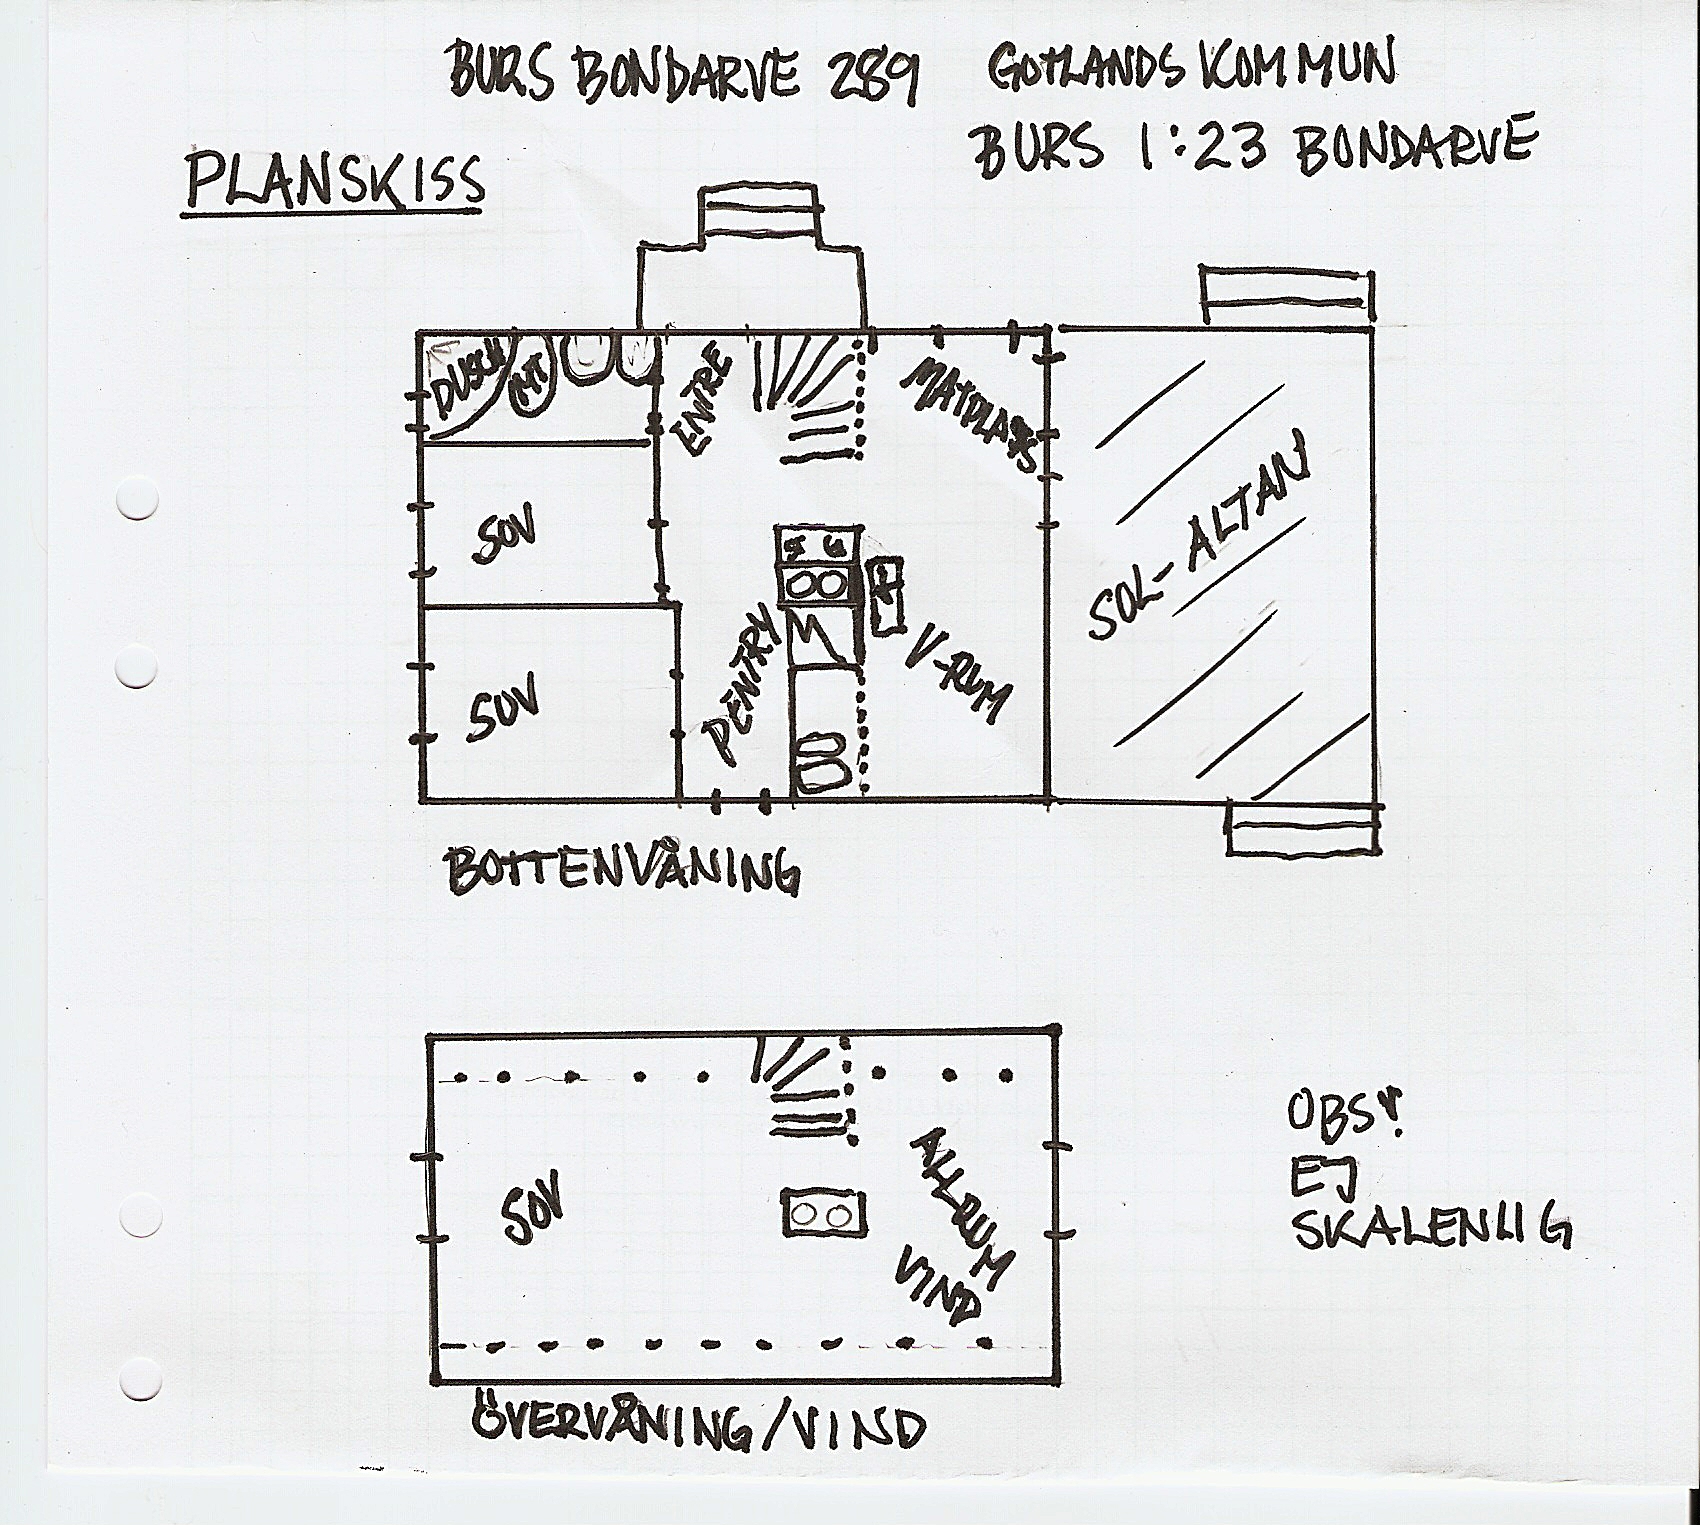 BURS BONDARVE 289 GOTLANDS KOMMUN
BURS 1:23 BONDARVE
PLANSKISS
DUSCH
ENTRE
MATPLATS
SOV
SOL-ALTAN
PENTRY
V-RUM
SOV
BOTTENVÅNING
SOV
ALLRUM
VIND
OBS!
EJ
SKALENLIG
ÖVERVÅNING/VIND